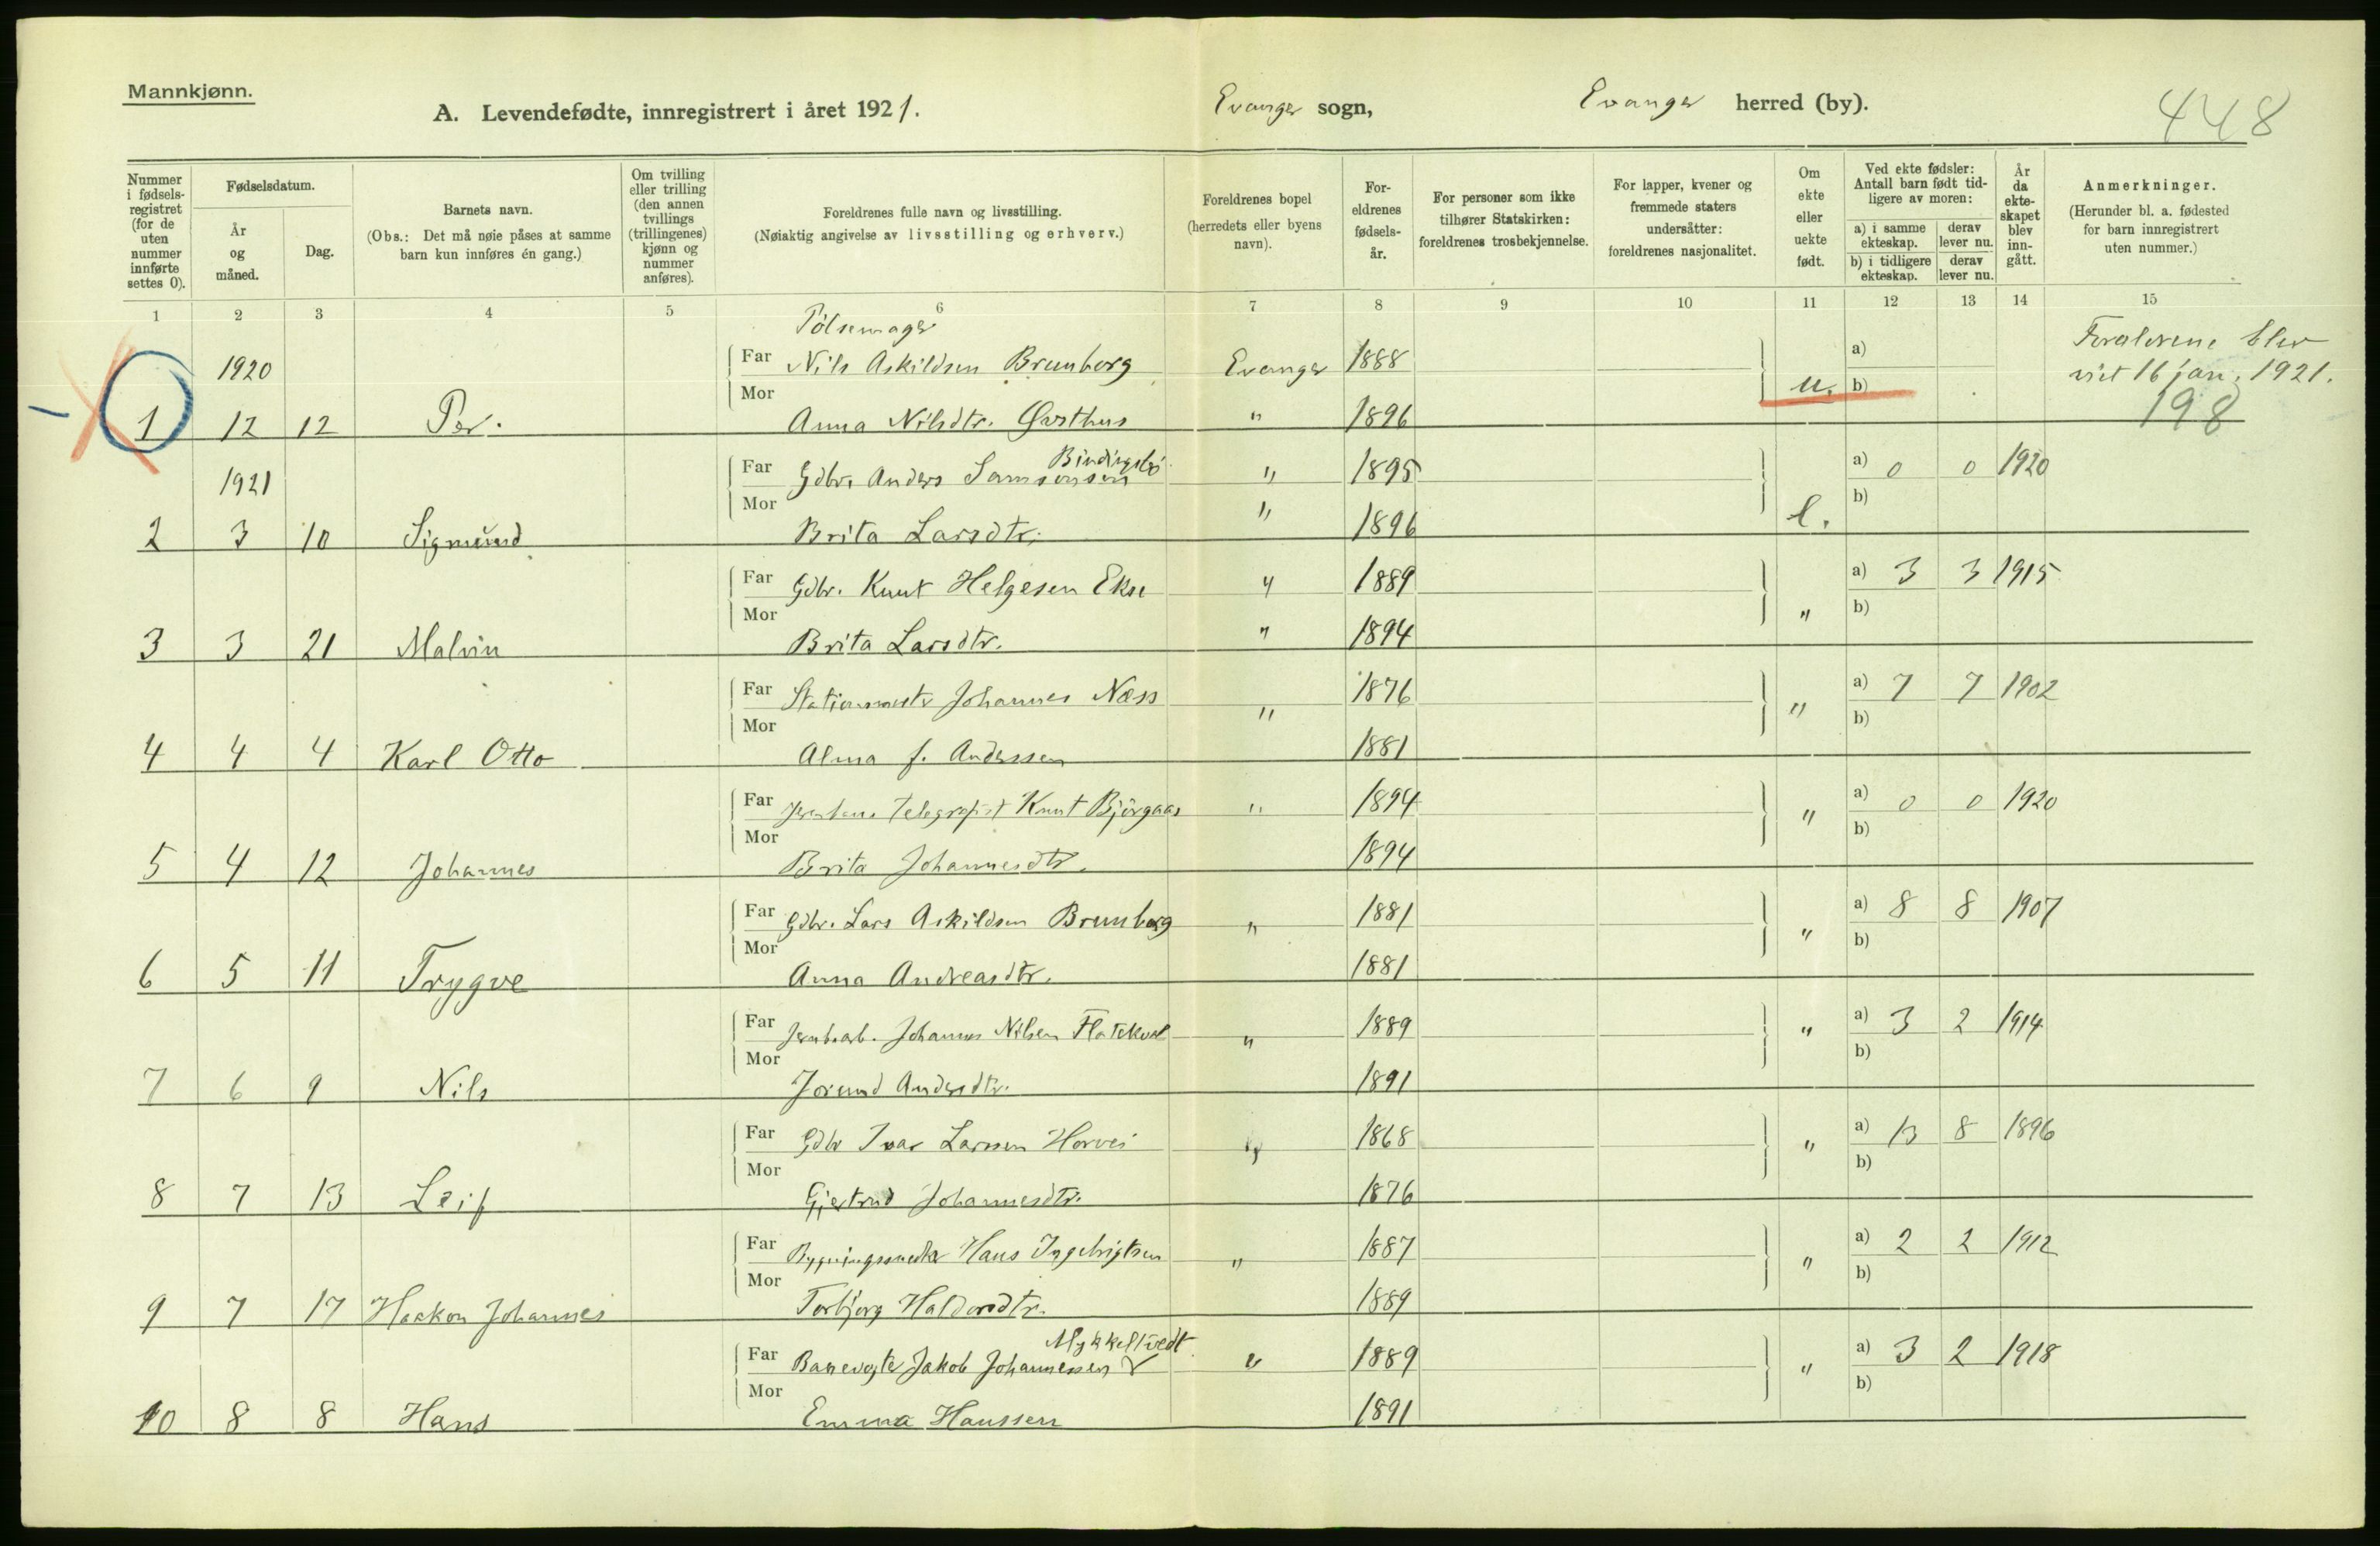 Mannkjønn.
A. Levendefødte, innregistrert i året 1921. Evanger sogn, Evanger herred (by).
448
Nummer i fødsels-registret (for de uten nummer innførte settes 0).
Fødselsdatum.
År og måned.
Dag.
Barnets navn.
(Obs.: Det må nøie påses at samme barn kun innføres én gang.)
Om tvilling eller trilling (den annen tvillings (trillingenes) kjønn og nummer anføres).
Foreldrenes fulle navn og livsstilling.
(Nøiaktig angivelse av livsstilling og erhverv.)
Foreldrenes bopel
(herredets eller byens navn).
For-eldrenes fødsels-år.
For personer som ikke tilhører Statskirken: foreldrenes trosbekjennelse.
For lapper, kvener og fremmede staters undersåtter: foreldrenes nasjonalitet.
Om ekte eller uekte født.
Ved ekte fødsler: Antall barn født tid-ligere av moren:
a) i samme ekteskap. derav lever nu.
b) i tidligere ekteskap. derav lever nu.
År da ekte-skapet blev inn-gått.
Anmerkninger.
(Herunder bl. a. fødested for barn innregistrert uten nummer.)
1 2 3 4 5 6 7 8 9 10 11 12 13 14 15
Pölsemager
1920 Far Nils Askildsen Brunborg Evanger 1888 a) Foreldrene blev
1 12 12 Per. Mor Anna Nilsdtr. Øvsthus " 1896 u. b) viet 16 jan. 1921.
198
Bindingsbö
1921 Far Gdbr. Anders Samsonsen " 1895 a) 0 0 1920
2 3 10 Sigmund Mor Brita Larsdtr. " 1896 e. b)
Far Gdbr. Knut Helgesen Ekse " 1889 a) 3 3 1915
3 3 21 Malvin Mor Brita Larsdtr. " 1894 " b)
Far Stationsmester Johannes Næss " 1876 a) 7 7 1902
4 4 4 Karl Otto Mor Alma f. Anderssen 1881 " b)
Far Jernbane telegrafist Knut Björgaas " 1894 a) 0 0 1920
5 4 12 Johannes Mor Brita Johannesdtr. 1894 " b)
Far Gdbr. Lars Askildsen Brunborg " 1881 a) 8 8 1907
6 5 11 Trygve Mor Anna Andreasdtr. 1881 " b)
Far Jernb.arb. Johannes Nilsen Flatekval " 1889 a) 3 2 1914
7 6 9 Nils Mor Jorund Andersdtr. 1891 " b)
Far Gdbr Ivar Larsen Horvei " 1868 a) 13 8 1896
8 7 13 Leif Mor Gjertrud Johannesdtr. 1876 " b)
Far Bygningssnedker Hans Ingebrigtsen " 1887 a) 2 2 1912
9 7 17 Haakon Johannes Mor Torbjorg Haldorsdtr. 1889 " b)
Mykkeltvedt
Far Banevogter Jakob Johannessen " 1889 a) 3 2 1918
10 8 8 Hans Mor Emma Hanssen 1891 " b)